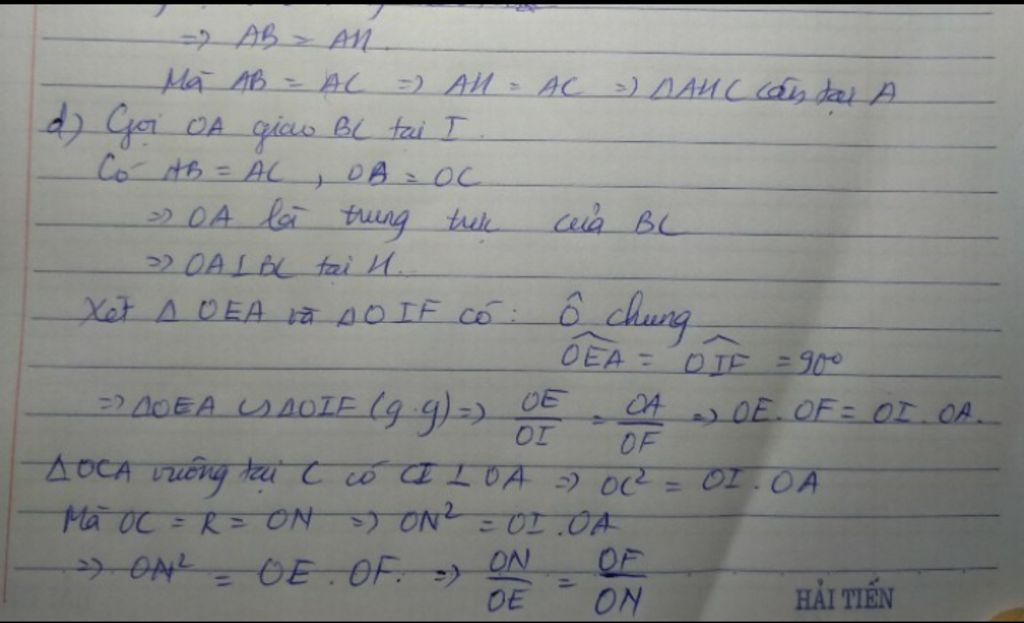 => AB = AH.
Mà AB = AC => AH = AC => ΔAHC cân tại A
d) Gọi OA giao BC tại I.
Có AB = AC, OB = OC
=> OA là trung trực của BC
=> OA ⊥ BC tại H.
Xét Δ OEA và ΔOIF có: Ô chung
\widehat{OEA} = \widehat{OIF} = 90°
=> ΔOEA ∽ ΔOIF (g.g) => OE/OI = OA/OF => OE.OF = OI.OA.
ΔOCA vuông tại C có CI ⊥ OA => OC² = OI.OA
Mà OC = R = ON => ON² = OI.OA
=> ON² = OE.OF. => ON/OE = OF/ON
HẢI TIẾN